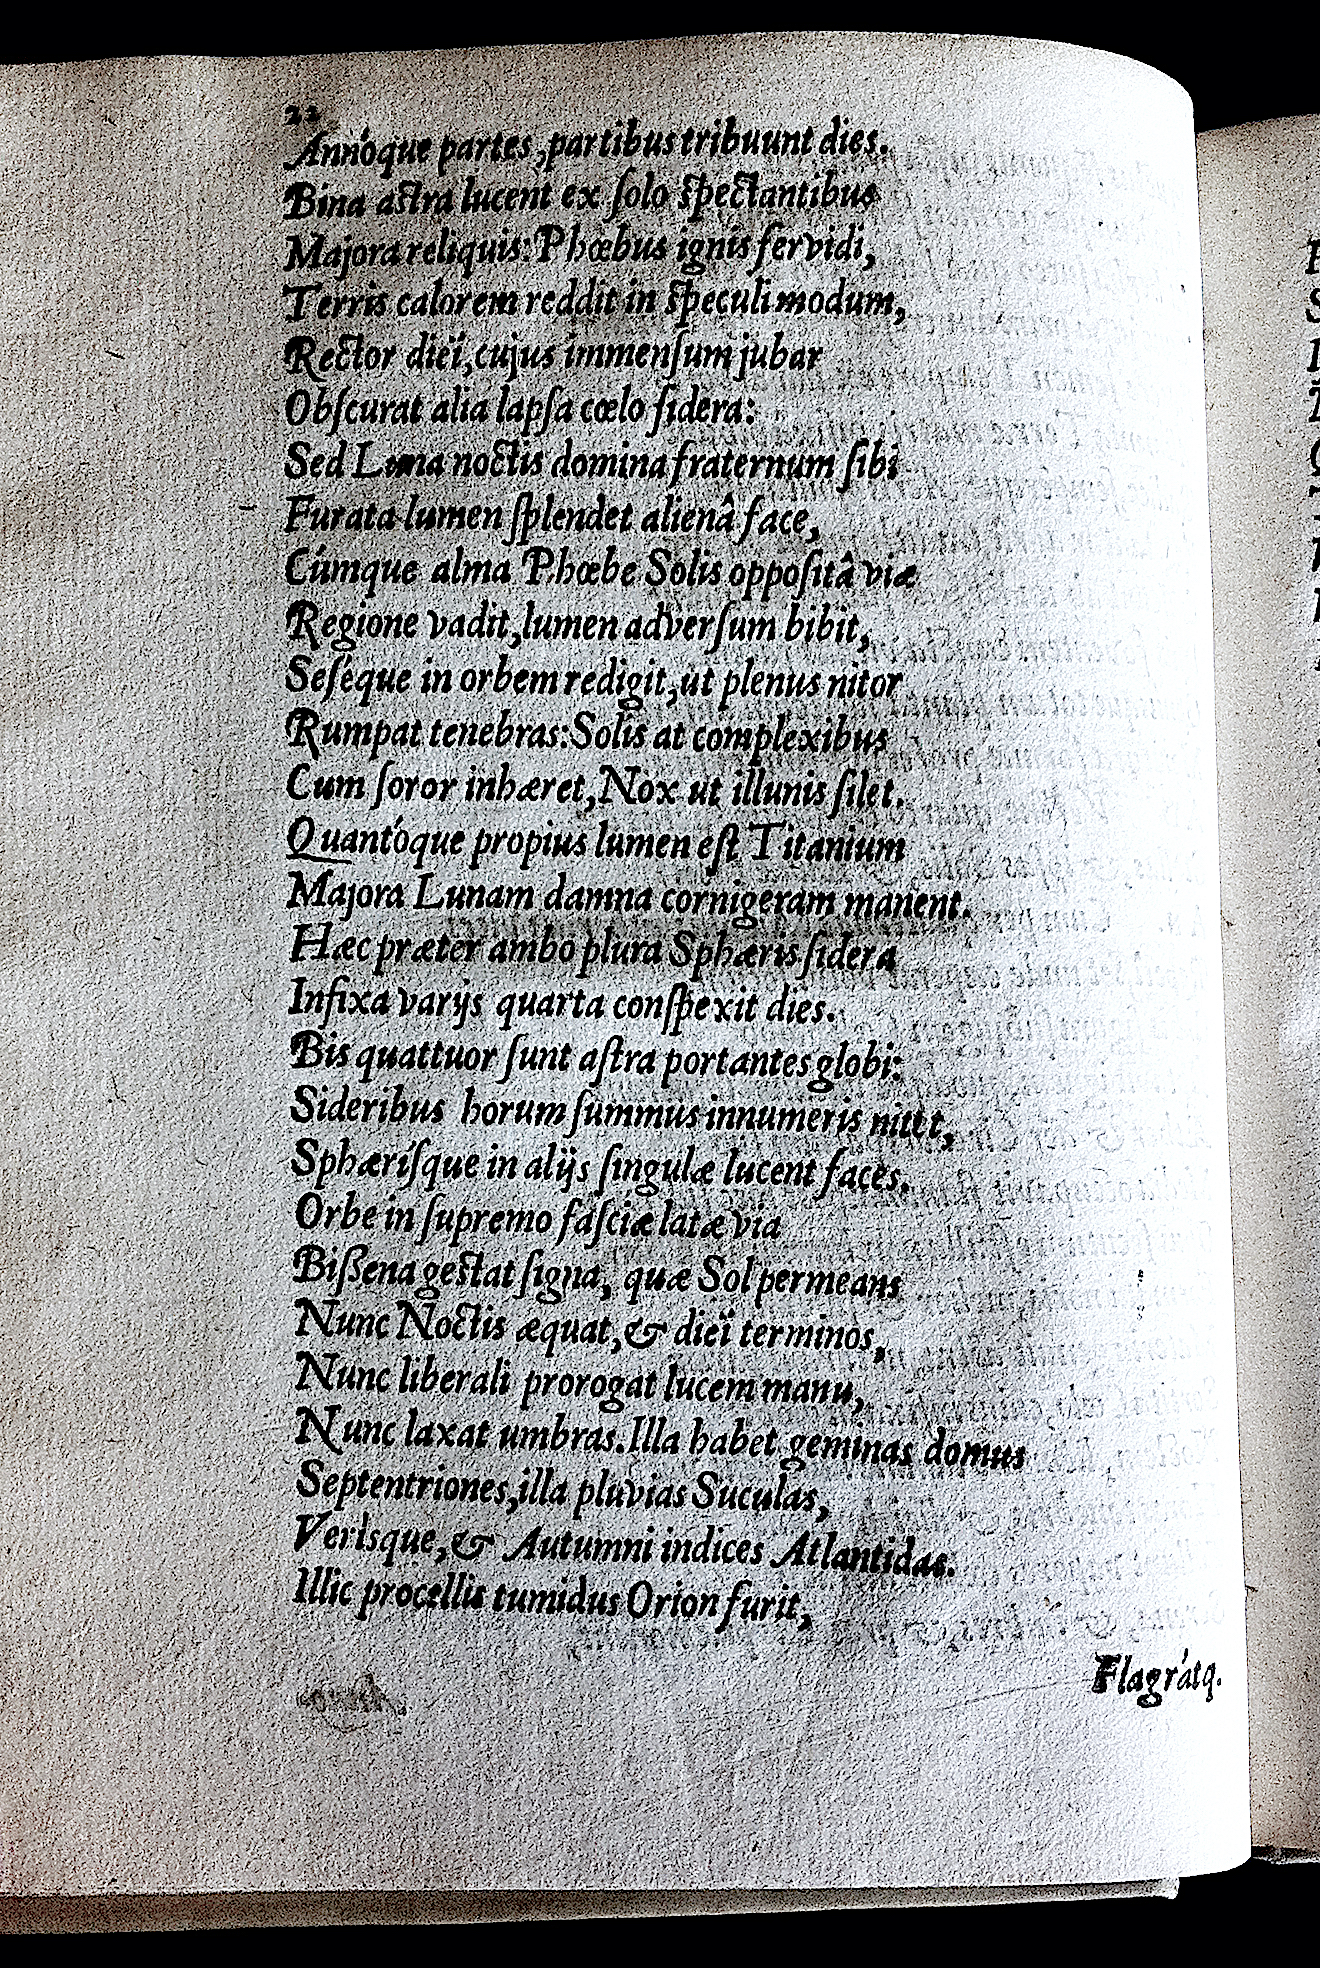 22
Annóque partes, partibus tribuunt dies.
Bina astra lucent ex ſolo ſpectantibus
Majora reliquis: Phœbus ignis fervidi,
Terris calorem reddit in ſpeculi modum,
Rector dieï, cujus immenſum jubar
Obſcurat alia lapſa cœlo ſidera:
Sed Luna noctis domina fraternum ſibi
Furata lumen ſplendet alienâ face,
Cúmque alma Phœbe Solis oppoſitâ viæ
Regione vadit, lumen adverſum bibit,
Seſéque in orbem redigit, ut plenus nitor
Rumpat tenebras: Solis at complexibus
Cum ſoror inhæret, Nox ut illunis ſilet.
Quantóque propius lumen eſt Titanium
Majora Lunam damna cornigeram manent.
Hæc præter ambo plura Sphæris ſidera
Infixa varijs quarta conſpexit dies.
Bis quattuor ſunt aſtra portantes globi:
Sideribus horum ſummus innumeris nitet,
Sphæriſque in alijs ſingulæ lucent faces.
Orbe in ſupremo faſciæ latæ via
Biſſena geſtat ſigna, quæ Sol permeans
Nunc Noctis æquat, & dieï terminos,
Nunc liberali prorogat lucem manu,
Nunc laxat umbras. Illa habet geminas domus
Septentriones, illa pluvias Suculas,
Verìsque, & Autumni indices Atlantidas.
Illic procellis tumidus Orion furit,
Flagrátq.